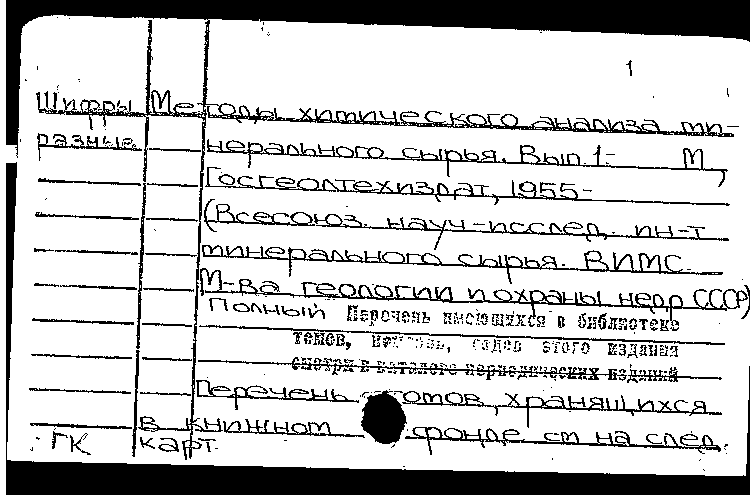 1
Шифры Методы химического анализа ми-
разные нерального сырья. Вып. 1- М,
Госгеолтехиздат, 1955-
(Всесоюз. науч-исслед. ин-т
минерального сырья. ВИМС.
М-ва геологии и охраны недр СССР)
Полный Перечень имеющихся в библиотеке
томов, годов этого издания
смотри в каталоге периодических изданий
Перечень томов, хранящихся
в книжном фонде см на след.
ГК карт.